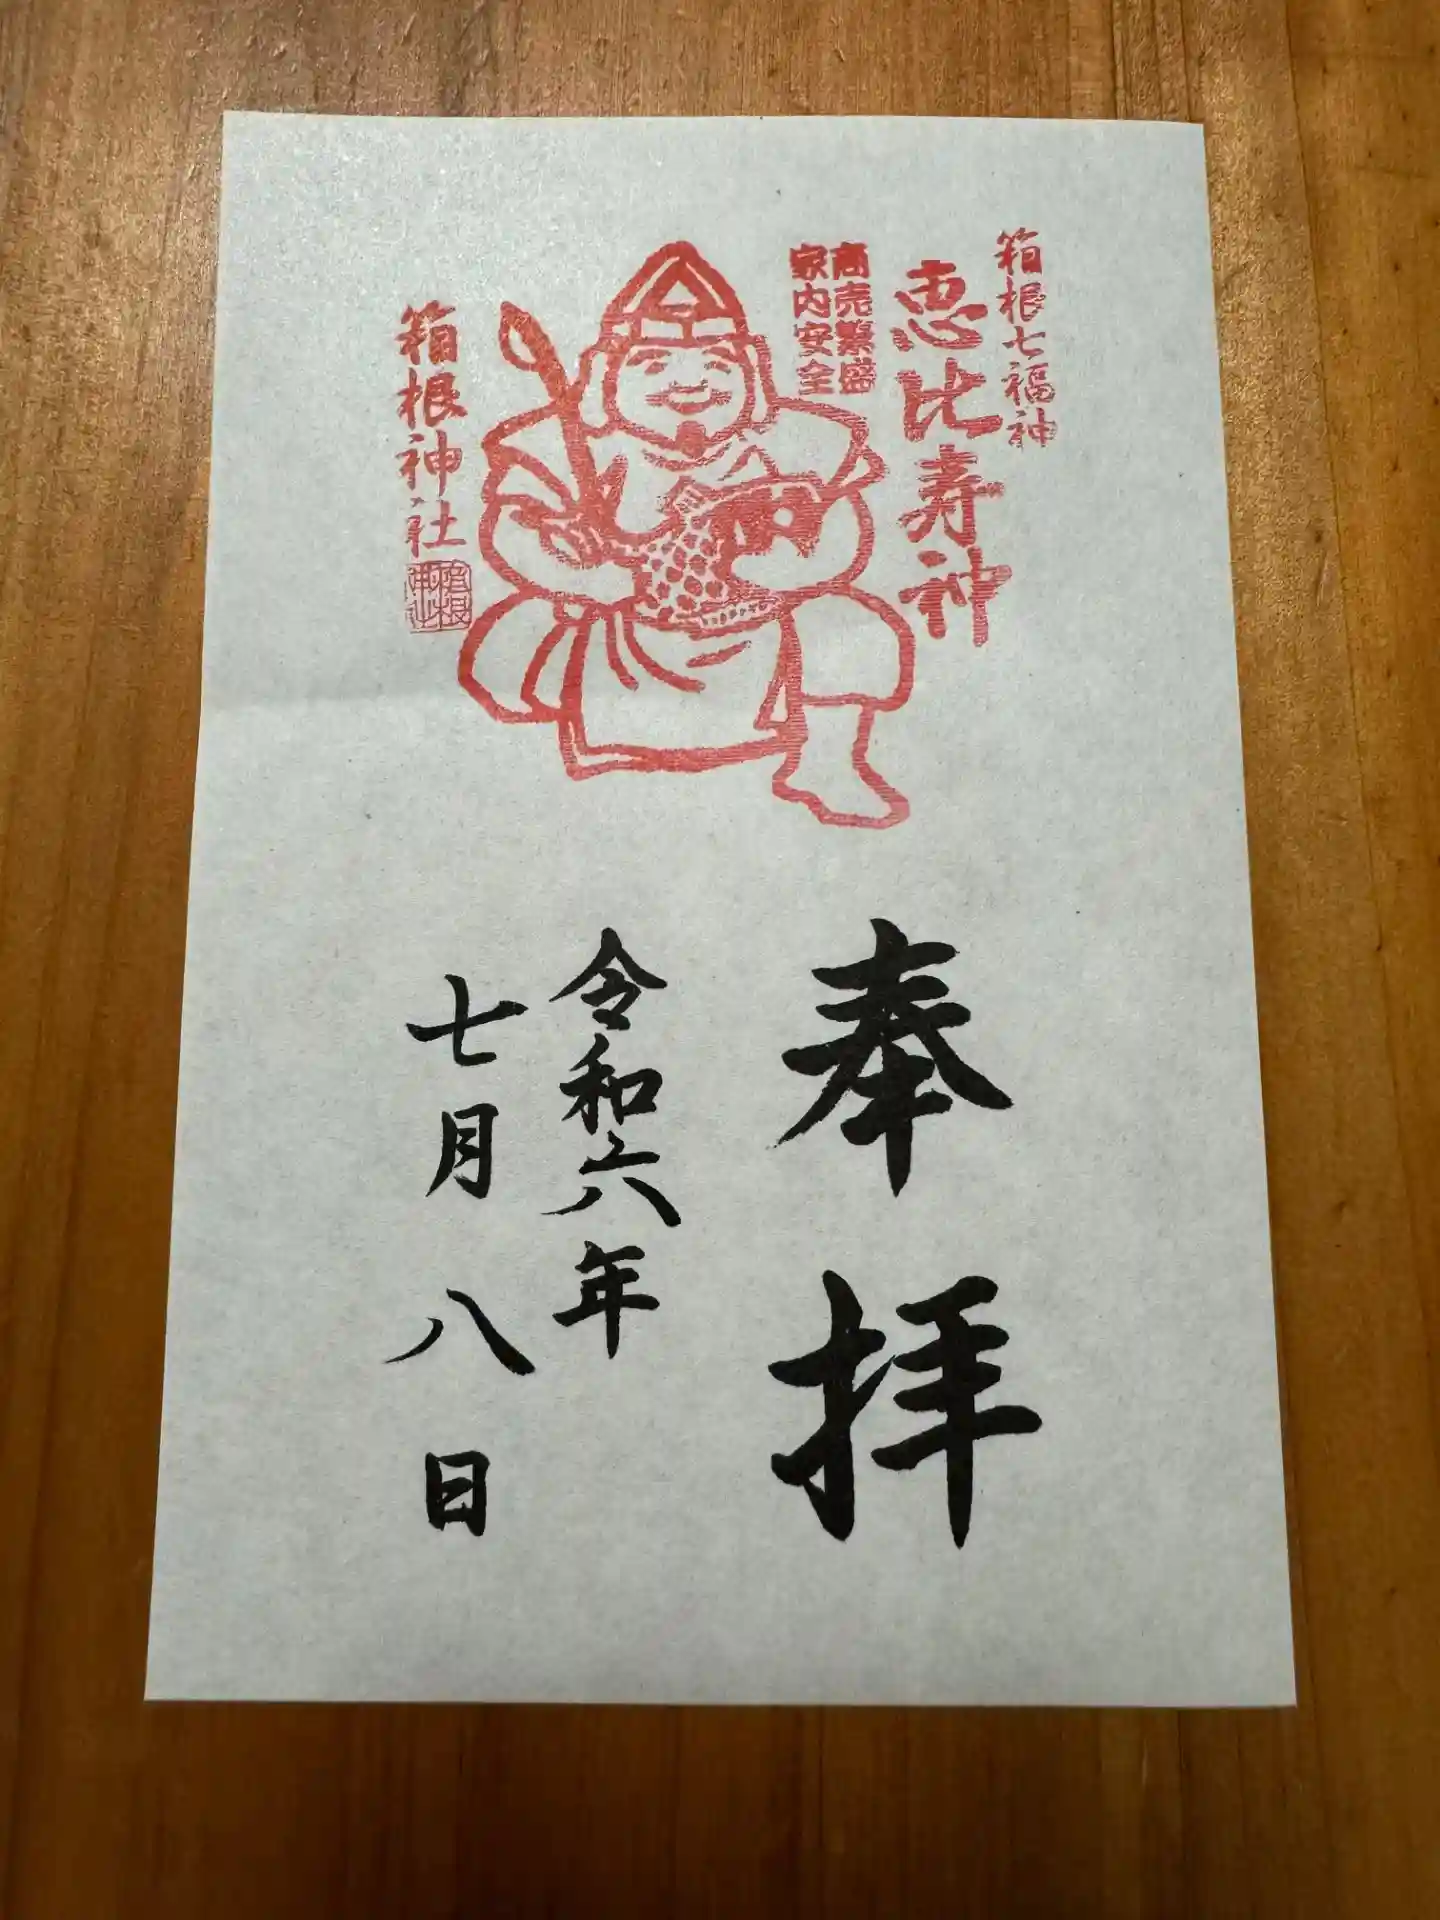 箱根七福神
恵比寿神
商売繁盛
家内安全
箱根神社
奉拝
令和六年
七月八日